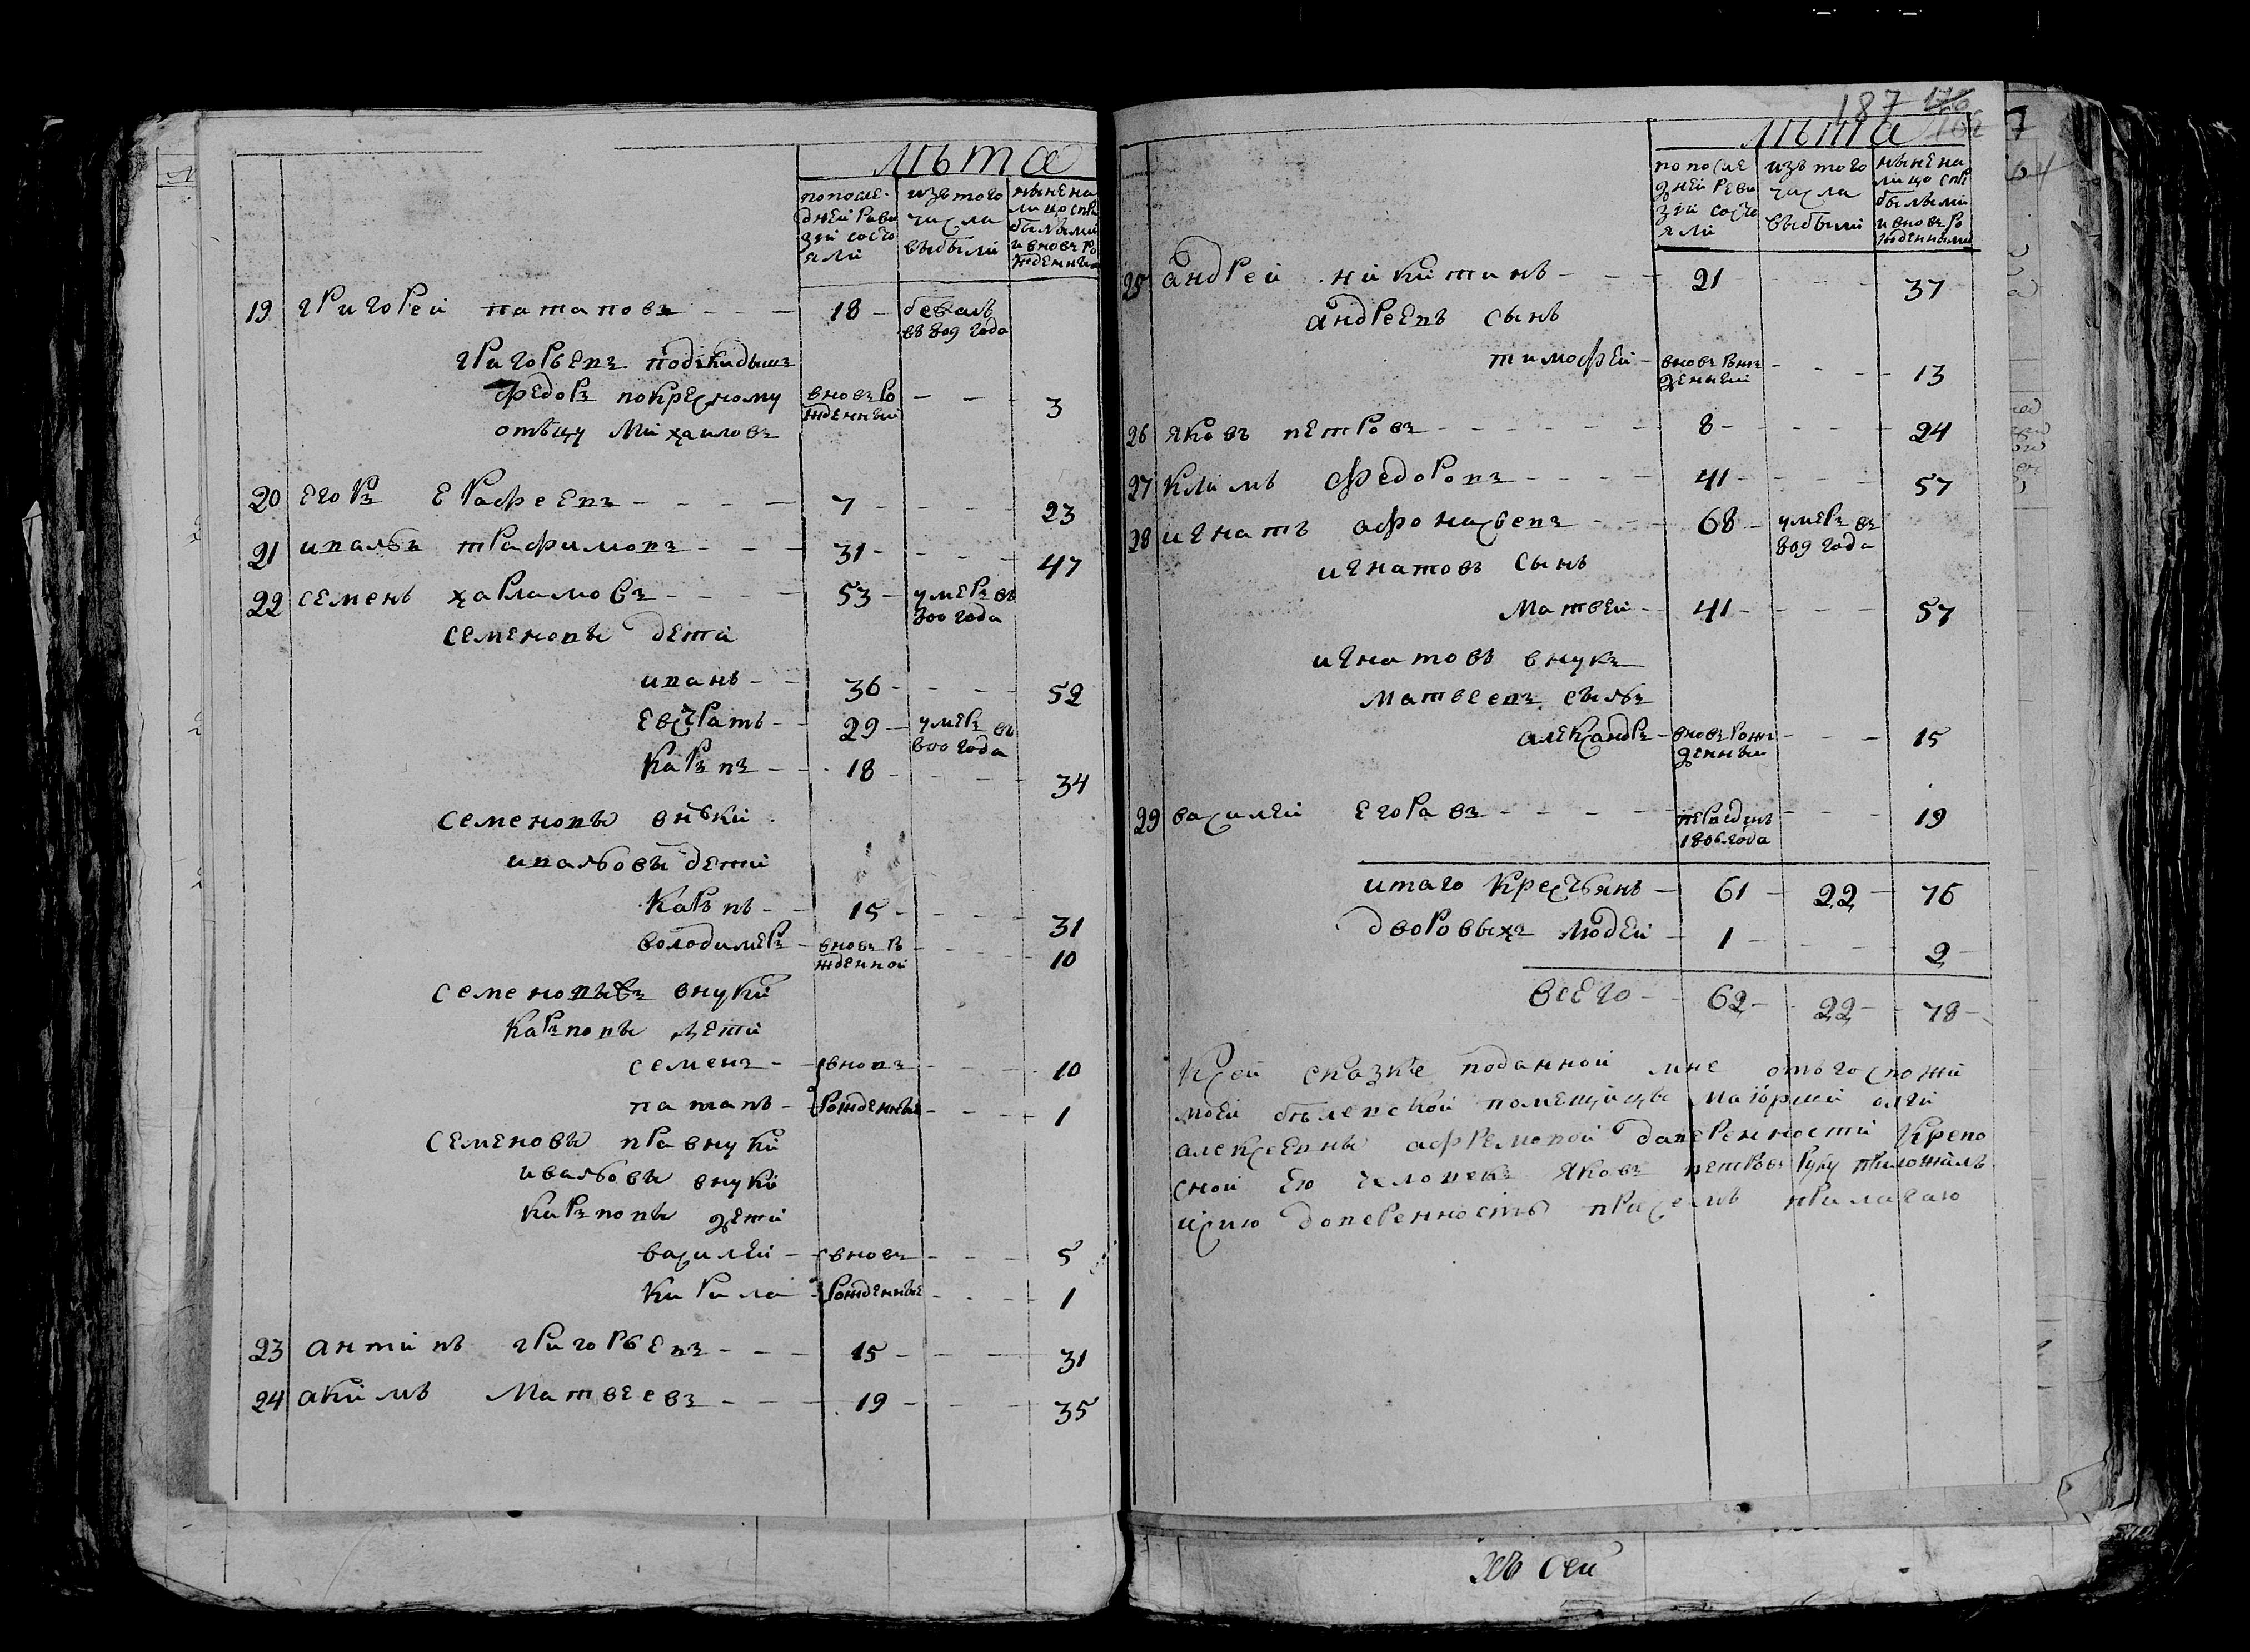 лѣта
по после-
дней реви
зіи состо
яли
изъ того
числа
выбыли
ныне на
лицо
19 григорей патаповъ - - - 18 - бежалъ
въ 809 года
григорьевъ подкидышъ
федоръ покресному вновъ ро - - - 3
отѣцу михаиловъ жденный
20 егоръ ерафеевъ - - - - 7 - - - - 23
21 иванъ трафимовъ - - - 31 - - - - 47
22 семенъ харламовъ - - - - 53 - умеръ въ
800 года
семеновы дети
иванъ - - 36 - - - - 52
евстратъ - 29 - умеръ въ
800 года
каръпъ - - 18 - - - - 34
семеновы внѣки
ивановы дети
каръпъ - - 15 - - - - 31
володимеръ - вновъ ро - - - 10
жденной
семеновы внуки
каръповы дети
семенъ - - вновъ - - - 10
патапъ - рожденные - - - 1
семеновы правнуки
ивановы внуки
каръповы дети
василей - - вновъ - - - 5
кирила - рожденные - - - 1
23 антипъ григорьевъ - - - 15 - - - 31
24 акимъ матвеевъ - - - 19 - - - 35
187
лѣта
по после
дней реви
зіи состо
яли
изъ того
числа
выбыли
ныне на
лицо
25 андрей никитинъ - - - 21 - - - 37
андреевъ сынъ
тимофей - вновъ рож - - - 13
денный
26 яковъ петровъ - - - - - - 8 - - - - 24
27 климъ федоровъ - - - - 41 - - - - 57
28 игнатъ афонасевъ - - - 68 - умеръ въ
809 года
игнатовъ сынъ
матвей - 41 - - - - 57
игнатовъ внукъ
матвеевъ сынъ
александръ - вновъ рож - - - 15
денный
29 василей егоравъ - - - - - - - 19
1806 года
итаго крестьянъ - 61 - 22 - 76
дворовыхъ людей - 1 - - - 2 -
всего - - 62 - 22 - 78 -
ксей сказке поданной мне отъ госпожи
моей бѣлевской помещицы маіорши
алексеевны афремовой даверенности крепо
сной ею человекъ яковъ петровъ руку приложилъ
исию доверенность присемъ прилагаю
къ сей